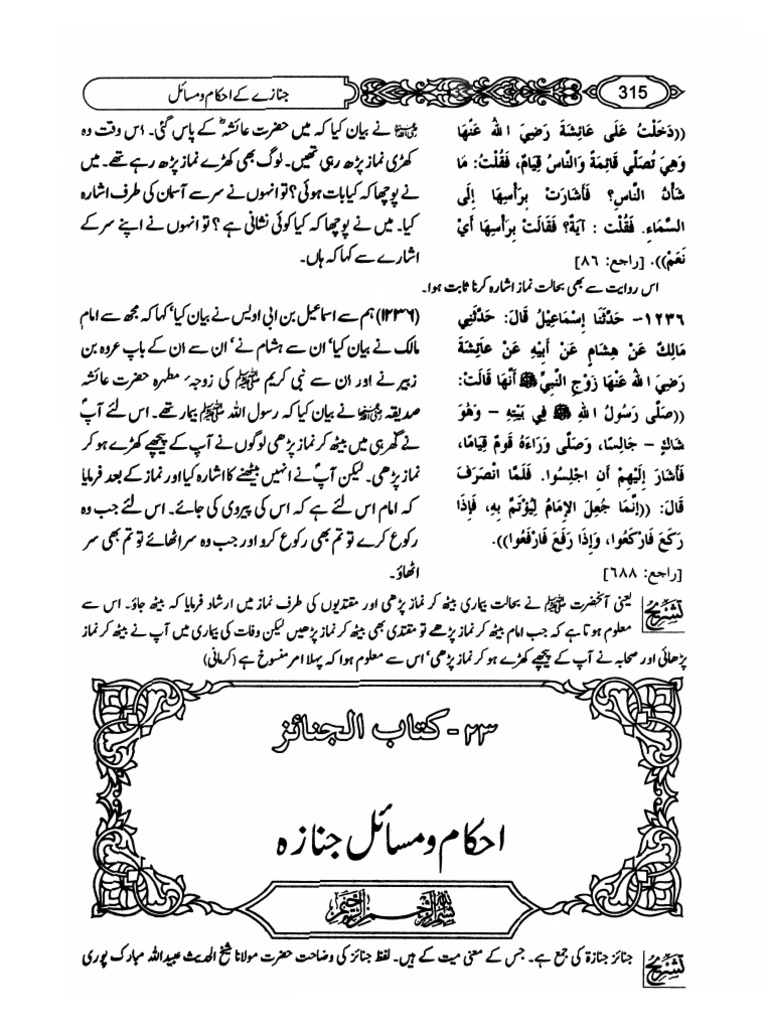 315
جنازے کے احکام و مسائل
((دَخَلْتُ عَلَى عَائِشَةَ رَضِيَ اللهُ عَنْهَا
وَهِيَ تُصَلِّي قَائِمَةً وَالنَّاسُ قِيَامٌ، فَقُلْتُ: مَا
شَأْنُ النَّاسِ؟ فَأَشَارَتْ بِرَأْسِهَا إِلَى
السَّمَاءِ. فَقُلْتُ : آيَةٌ؟ فَقَالَتْ بِرَأْسِهَا أَيْ
نَعَمْ)). [راجع: ٨٦]
نے بیان کیا کہ میں حضرت عائشہؓ کے پاس گئی۔ اس وقت وہ
کھڑی نماز پڑھ رہی تھیں۔ لوگ بھی کھڑے نماز پڑھ رہے تھے۔ میں
نے پوچھا کہ کیا بات ہوئی؟ تو انہوں نے سر سے آسمان کی طرف اشارہ
کیا۔ میں نے پوچھا کہ کیا کوئی نشانی ہے ؟ تو انہوں نے اپنے سر کے
اشارے سے کہا کہ ہاں۔
اس روایت سے بھی بحالت نماز اشارہ کرنا ثابت ہوا۔
١٢٣٦- حَدَّثَنَا إِسْمَاعِيْلُ قَالَ: حَدَّثَنِي
مَالِكٌ عَنْ هِشَامٍ عَنْ أَبِيْهِ عَنْ عَائِشَةَ
رَضِيَ اللهُ عَنْهَا زَوْجِ النَّبِيِّ ﷺ أَنَّهَا قَالَتْ:
((صَلَّى رَسُولُ اللهِ ﷺ فِي بَيْتِهِ - وَهُوَ
شَاكٍ - جَالِسًا، وَصَلَّى وَرَاءَهُ قَومٌ قِيَامًا،
فَأَشَارَ إِلَيْهِمْ أَنِ اجْلِسُوا. فَلَمَّا انْصَرَفَ
قَالَ: ((إِنَّمَا جُعِلَ الإِمَامُ لِيُؤْتَمَّ بِهِ، فَإِذَا
رَكَعَ فَارْكَعُوا، وَإِذَا رَفَعَ فَارْفَعُوا)).
[راجع: ٦٨٨]
(۱۲۳۶) ہم سے اسماعیل بن ابی اویس نے بیان کیا‘ کہا کہ مجھ سے امام
مالک نے بیان کیا‘ ان سے ہشام نے‘ ان سے ان کے باپ عروہ بن
زبیر نے اور ان سے نبی کریم ﷺ کی زوجہ مطہرہ حضرت عائشہ
صدیقہ رضی اللہ عنہا نے بیان کیا کہ رسول اللہ ﷺ بیمار تھے۔ اس لئے آپؐ
نے گھر ہی میں بیٹھ کر نماز پڑھی لوگوں نے آپ کے پیچھے کھڑے ہو کر
نماز پڑھی۔ لیکن آپؐ نے انہیں بیٹھنے کا اشارہ کیا اور نماز کے بعد فرمایا
کہ امام اس لئے ہے کہ اس کی پیروی کی جائے۔ اس لئے جب وہ
رکوع کرے تو تم بھی رکوع کرو اور جب وہ سر اٹھائے تو تم بھی سر
اٹھاؤ۔
تشریح یعنی آنحضرت ﷺ نے بحالت بیماری بیٹھ کر نماز پڑھی اور مقتدیوں کی طرف نماز میں ارشاد فرمایا کہ بیٹھ جاؤ۔ اس سے
معلوم ہوتا ہے کہ جب امام بیٹھ کر نماز پڑھے تو مقتدی بھی بیٹھ کر نماز پڑھیں لیکن وفات کی بیماری میں آپ نے بیٹھ کر نماز
پڑھائی اور صحابہ نے آپ کے پیچھے کھڑے ہو کر نماز پڑھی‘ اس سے معلوم ہوا کہ پہلا امر منسوخ ہے (کرمانی)
۲۳- کتاب الجنائز
احکام و مسائل جنازہ
بسم الله الرحمن الرحيم
تشریح جنائز جنازة کی جمع ہے۔ جس کے معنی میت کے ہیں۔ لفظ جنائز کی وضاحت حضرت مولانا شیخ الحدیث عبیداللہ مبارک پوری